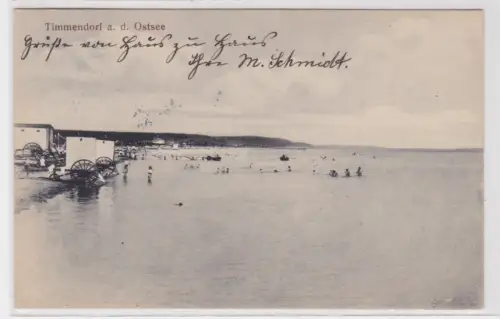 Timmendorf a. d. Ostsee
Grüße von Haus zu Haus
Ihre M. Schmidt.